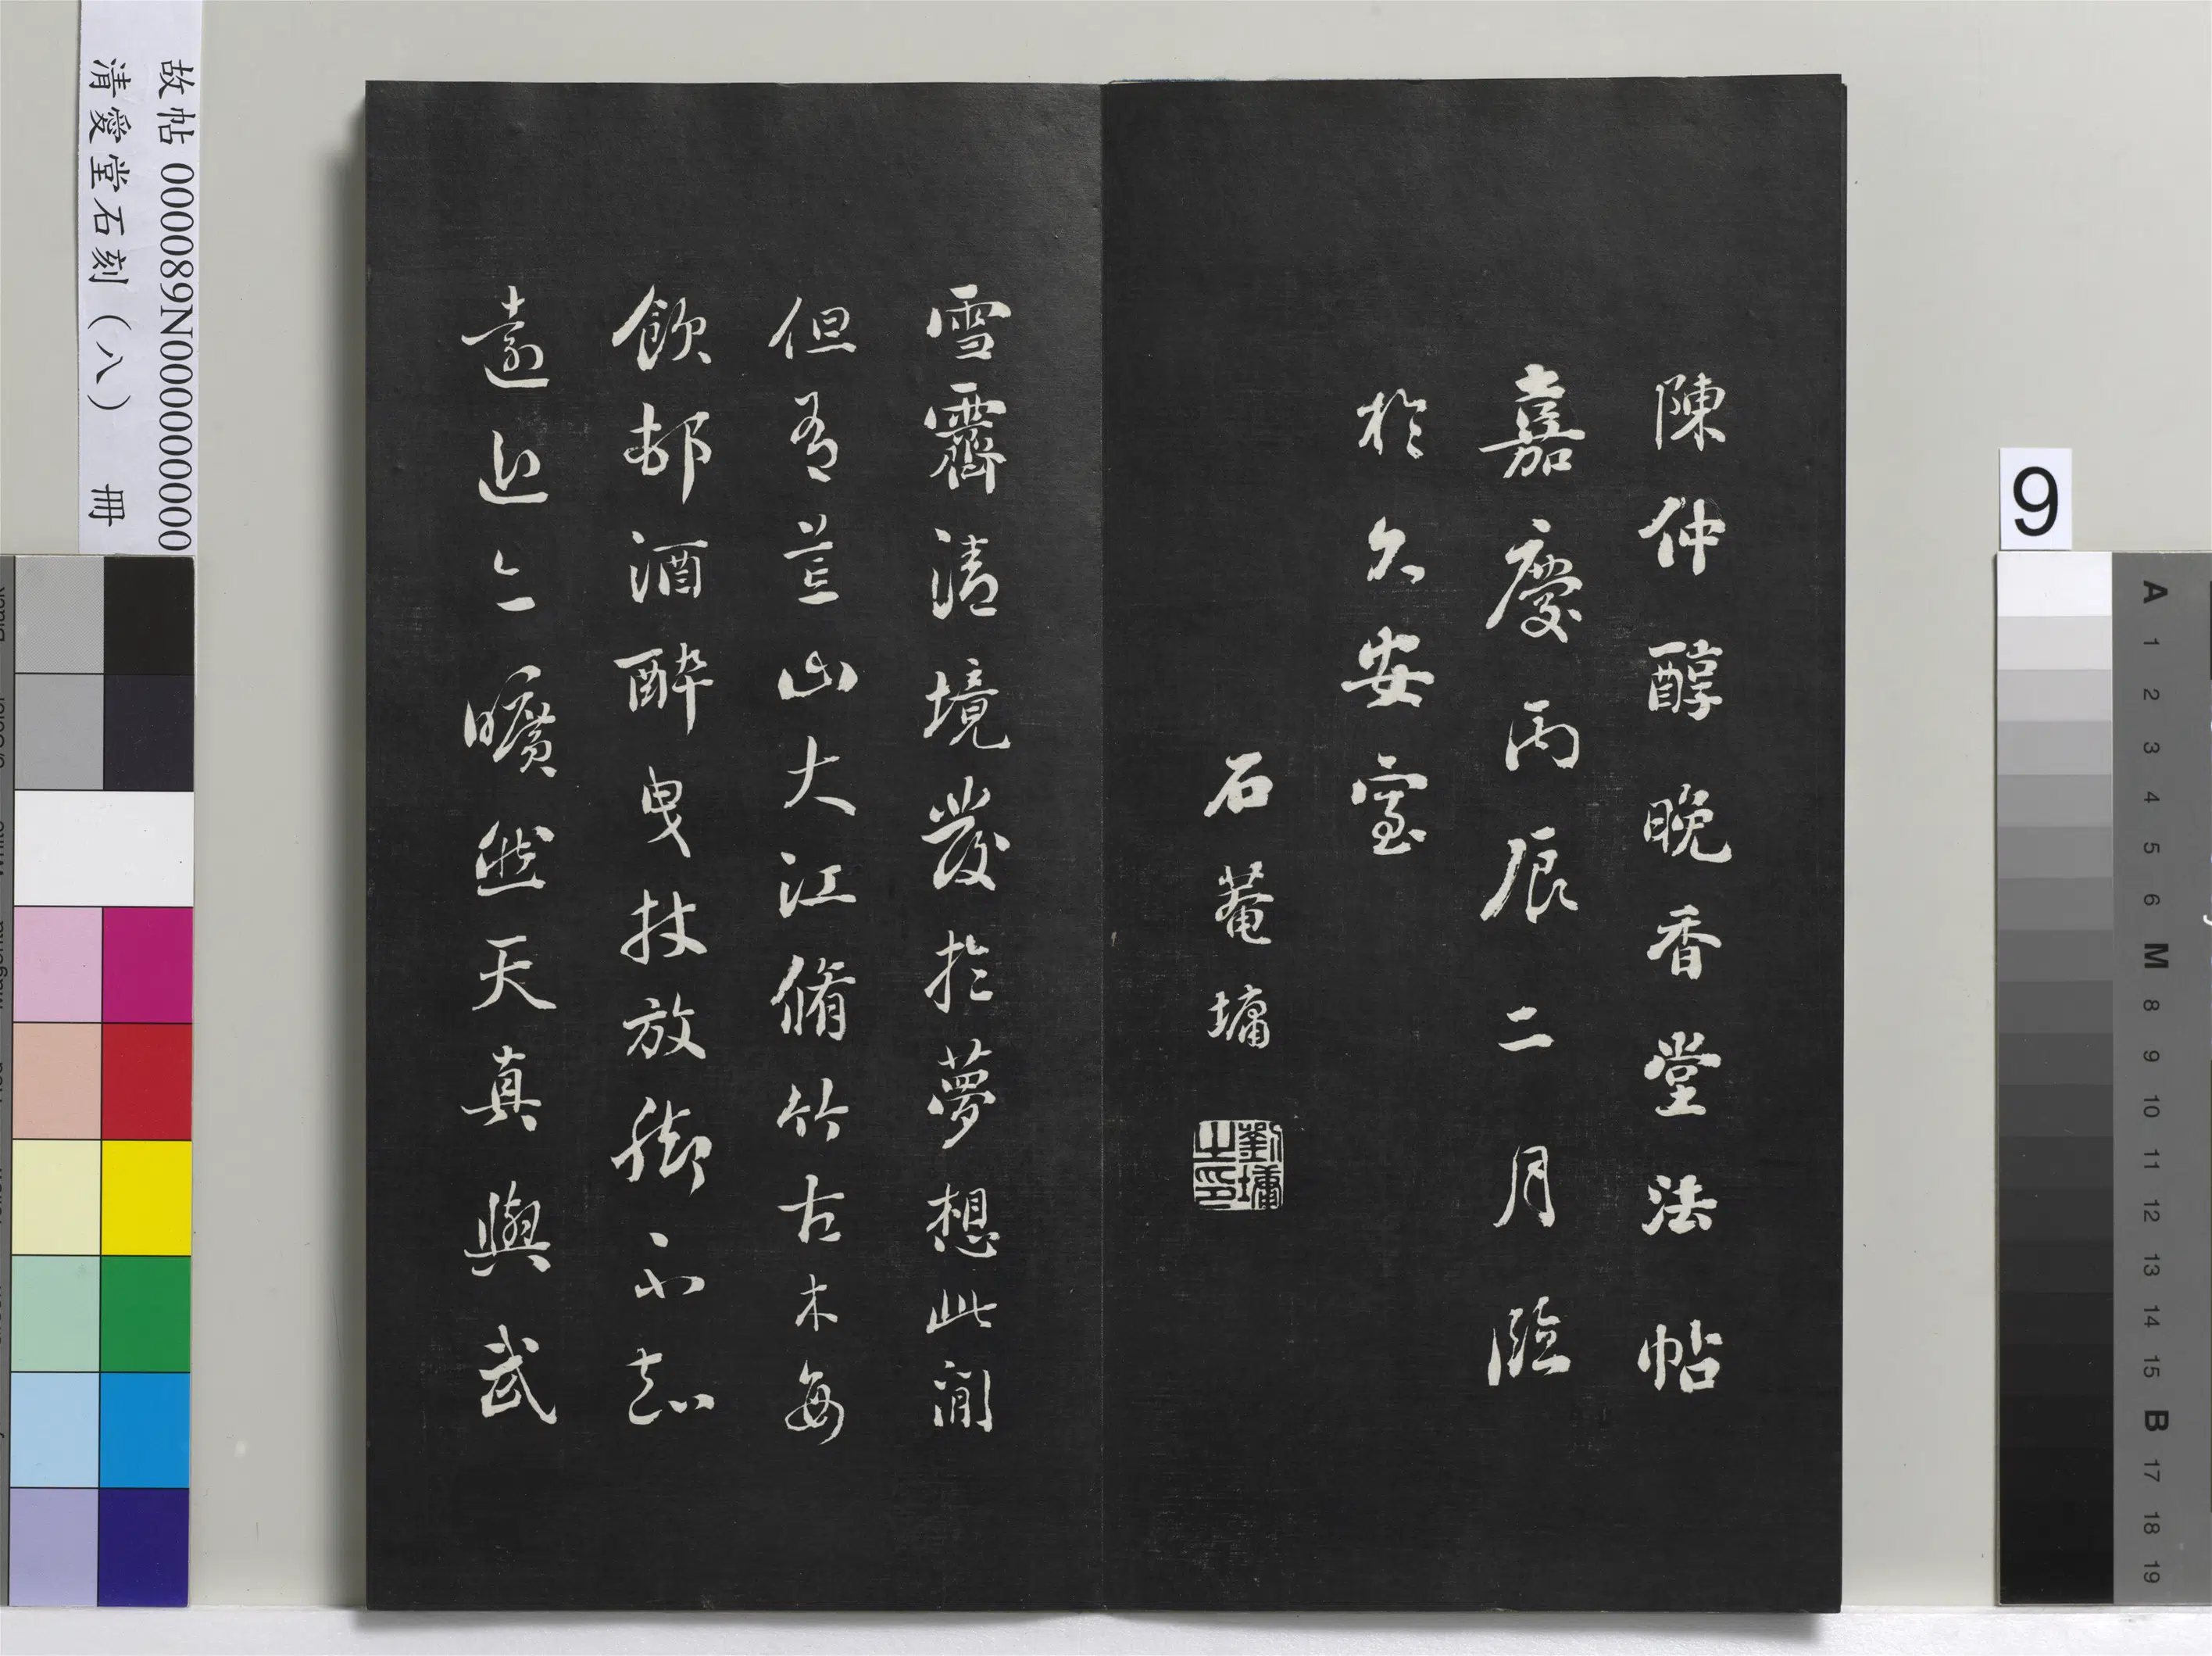 陳仲醇晚香堂法帖
嘉慶丙辰二月臨
於久安室
石菴墉
劉墉之印
雪霽清境發於夢想此間
但有荒山大江脩竹古木每
飲邨酒醉曳杖放腳不知
遠近亦曠然天真與武
故帖 000089N000000000
清愛堂石刻（八） 冊
9
A 1 2 3 4 5 6 M 8 9 10 11 12 13 14 15 B 17 18 19